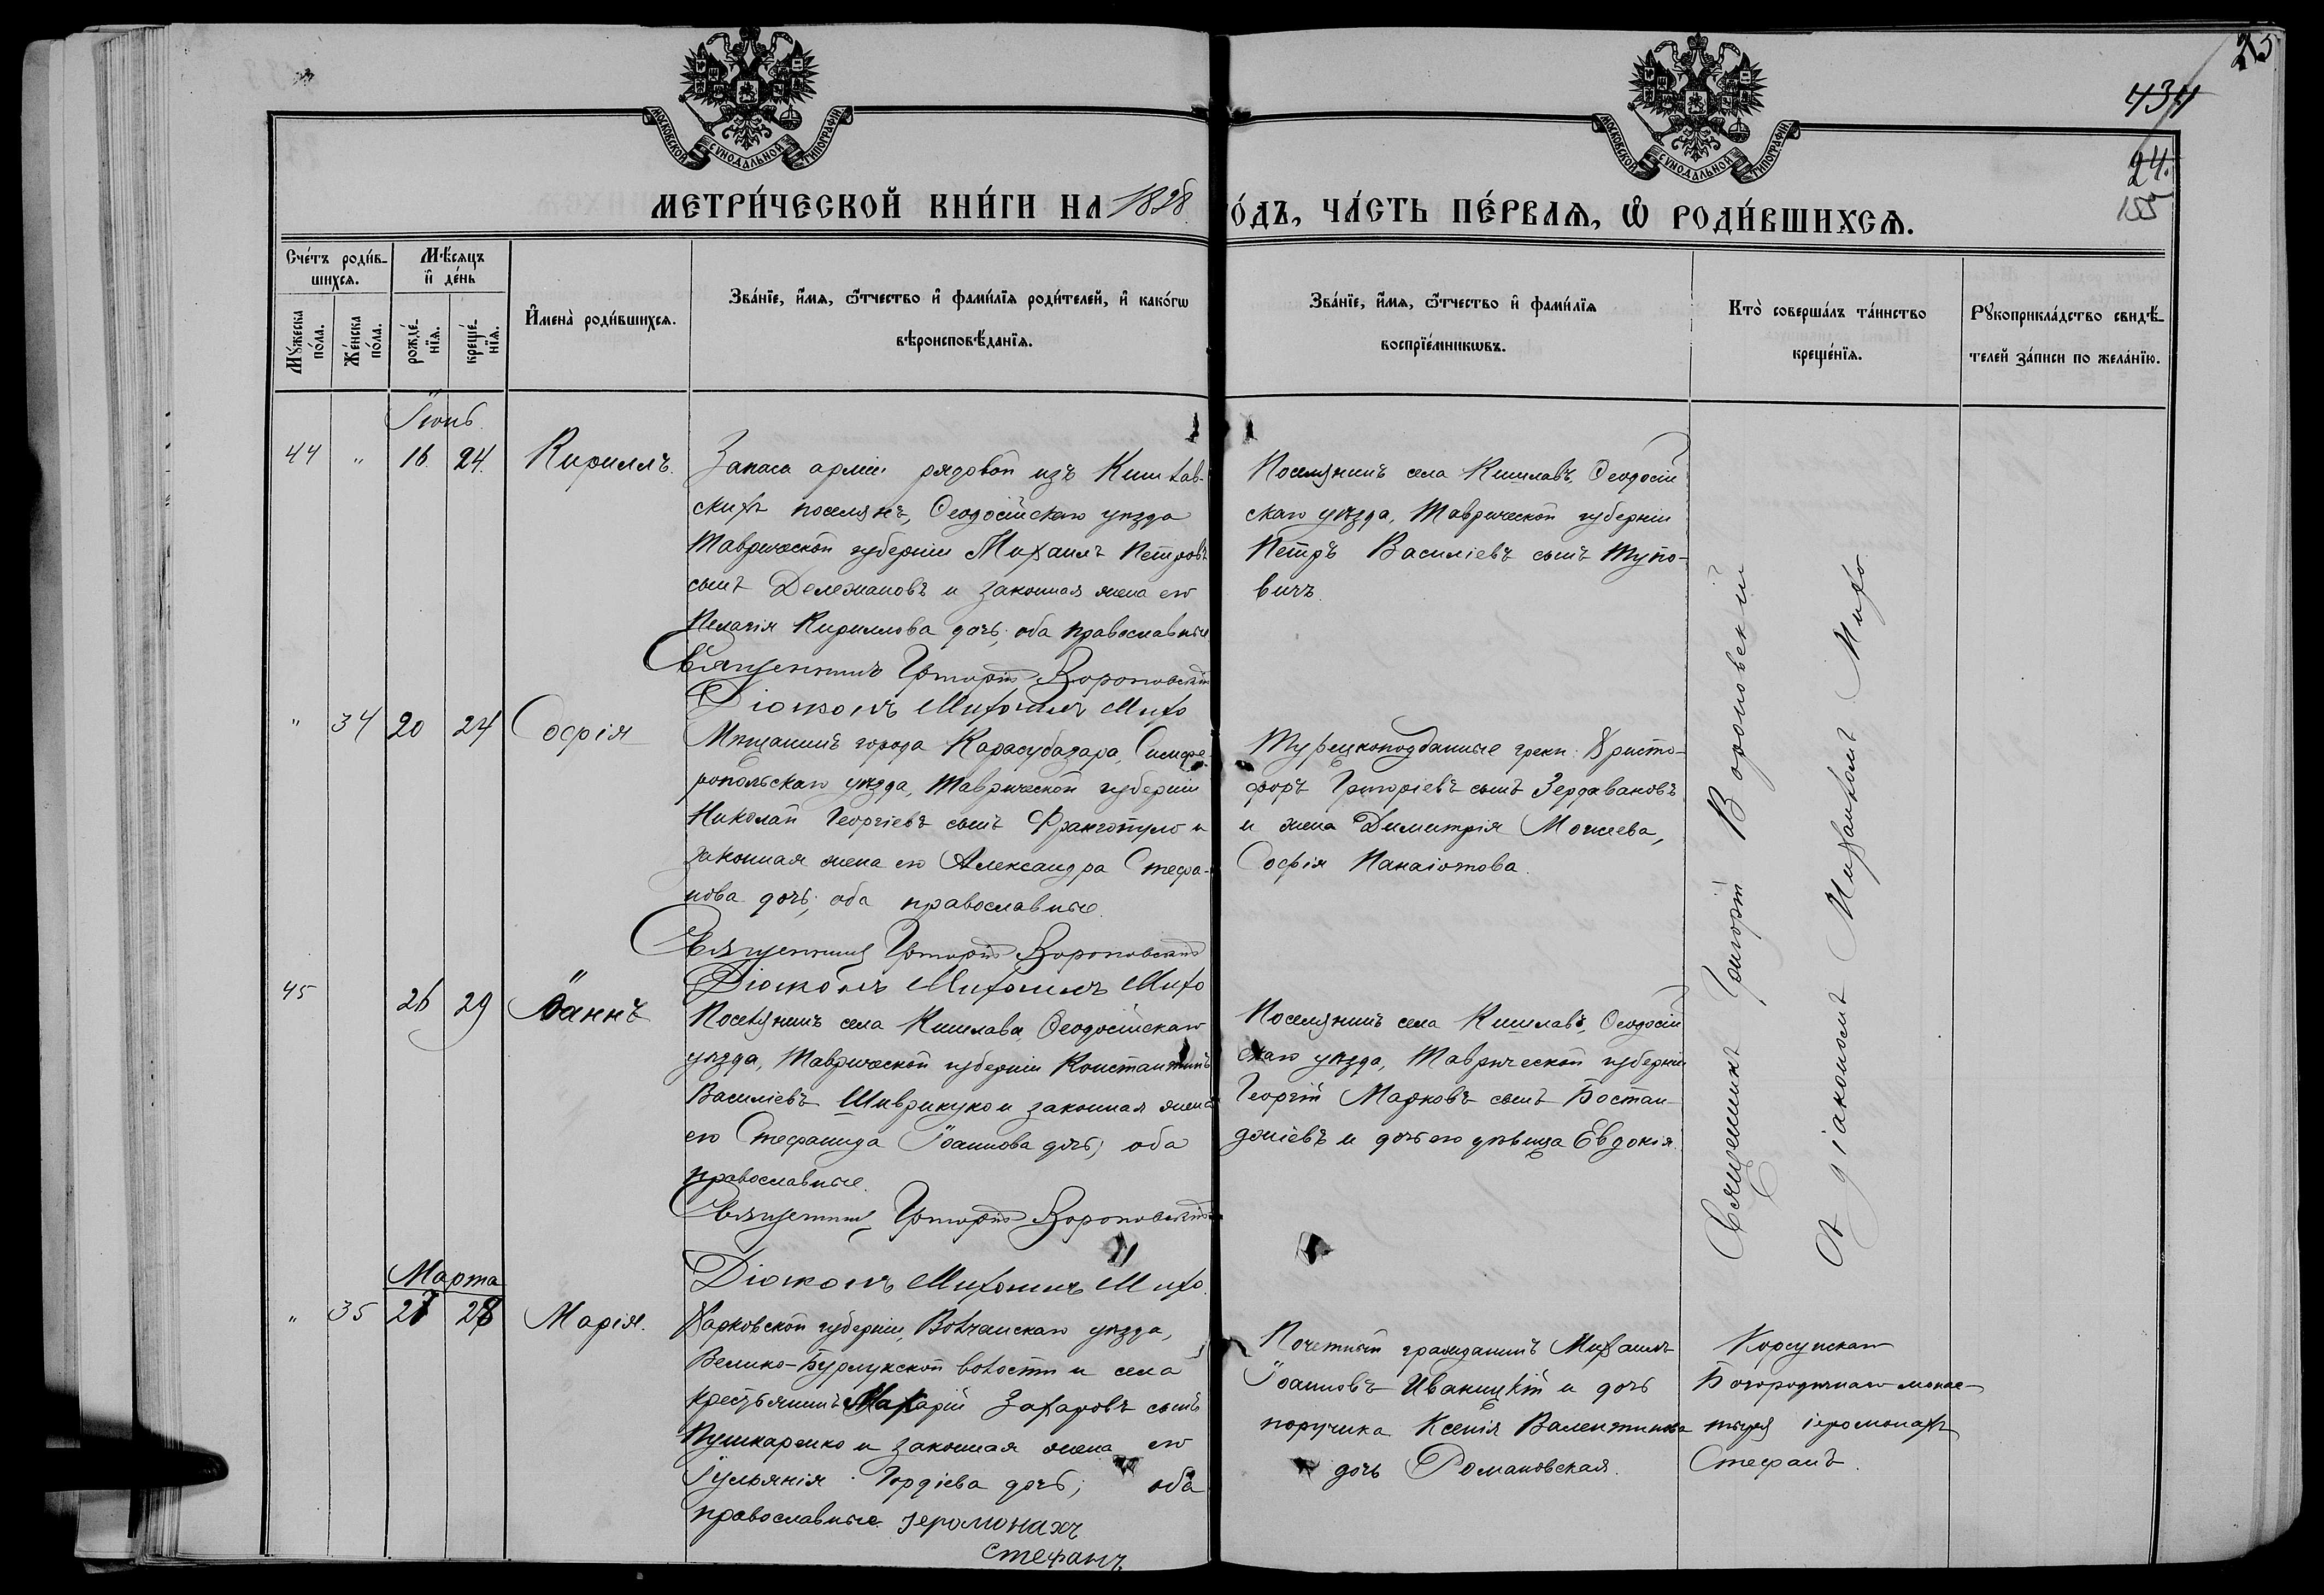 25
434
24.
155
МОСКОВСКОЙ СѴНОДАЛЬНОЙ ТИПОГРАФІИ
МОСКОВСКОЙ СѴНОДАЛЬНОЙ ТИПОГРАФІИ
МЕТРИ́ЧЕСКОЙ КНИ́ГИ НА 1898 ГО́ДЪ, ЧА́СТЬ ПЕ́РВАѦ, Ѽ РОДИ́ВШИХСѦ.
Сче́тъ роди́в-
шихсѧ.
Мꙋ́жеска по́ла.
Же́нска по́ла.
Мѣ́сѧцъ
и҆ де́нь
рожде́-
нїѧ.
креще́-
нїѧ.
И҆мена̀ роди́вшихсѧ.
Зва́нїе, и҆́мѧ, ѻ҆́тчество и҆ фами́лїѧ роди́телей, и҆ како́гѡ
вѣроисповѣ́данїѧ.
Зва́нїе, и҆́мѧ, ѻ҆́тчество и҆ фами́лїѧ
воспрїе́мникѡвъ.
Кто̀ соверша́лъ та́инство
креще́нїѧ.
Рꙋкоприкла́дство свидѣ́-
телей за́писи по жела́нїю.
Іюнь.
44 " 16. 24. Кириллъ.
Запаса арміи рядовой изъ Кишлав-
скихъ поселянъ, Ѳеодосійскаго уѣзда
Таврической губерніи Михаилъ Петровъ
сынъ Дележановъ и законная жена его
Пелагія Кириллова дочь; оба православные.
Священникъ Григорій Вороновскій
Діаконъ Михаилъ Михо
Поселянинъ села Кишлавъ, Ѳеодосій
скаго уѣзда, Таврической губерніи
Петръ Василіевъ сынъ Тупо-
вичъ.
" 34 20 24 Софія
Мѣщанинъ города Карасубазара, Симфе-
ропольскаго уѣзда, Таврической губерніи
Николай Георгіевъ сынъ Франгопуло и
законная жена его Александра Стефа-
нова дочь; оба православные.
Священникъ Григорій Вороновскій
Діаконъ Михаилъ Михо
Турецкоподданные греки: Христо-
форъ Григоріевъ сынъ Зердавановъ
и жена Димитрія Моисеева,
Софія Панаіотова.
45 26 29 Іоаннъ
Поселянинъ села Кишлава, Ѳеодосійскаго
уѣзда, Таврической губерніи Константинъ
Василіевъ Шиврикуко и законная жена
его Стефанида Іоаннова дочь; оба
православные.
Священникъ Григорій Вороновскій
Діаконъ Михаилъ Михо.
Поселянинъ села Кишлавъ, Ѳеодосій
скаго уѣзда, Таврической губерніи
Георгій Марковъ сынъ Бостан
джіевъ и дочь его дѣвица Евдокія.
Священникъ Григорій Вороновскій
съ діакономъ Михаиломъ Михо
Марта
" 35 27 28 Марія.
Харьковской губерніи, Волчанскаго уѣзда,
Велико-Бурлукской волости и села
крестьянинъ Макарій Захаровъ сынъ
Пушкаренко и законная жена его
Іульянія Гордіева дочь; оба
православные. Іеромонахъ
Стефанъ
Почетный гражданинъ Михаилъ
Іоанновъ Иваницкій и дочь
поручика Ксенія Валентинова
дочь Романовская.
Корсунскаго
Богородичнаго монас-
тыря іеромонахъ
Стефанъ.